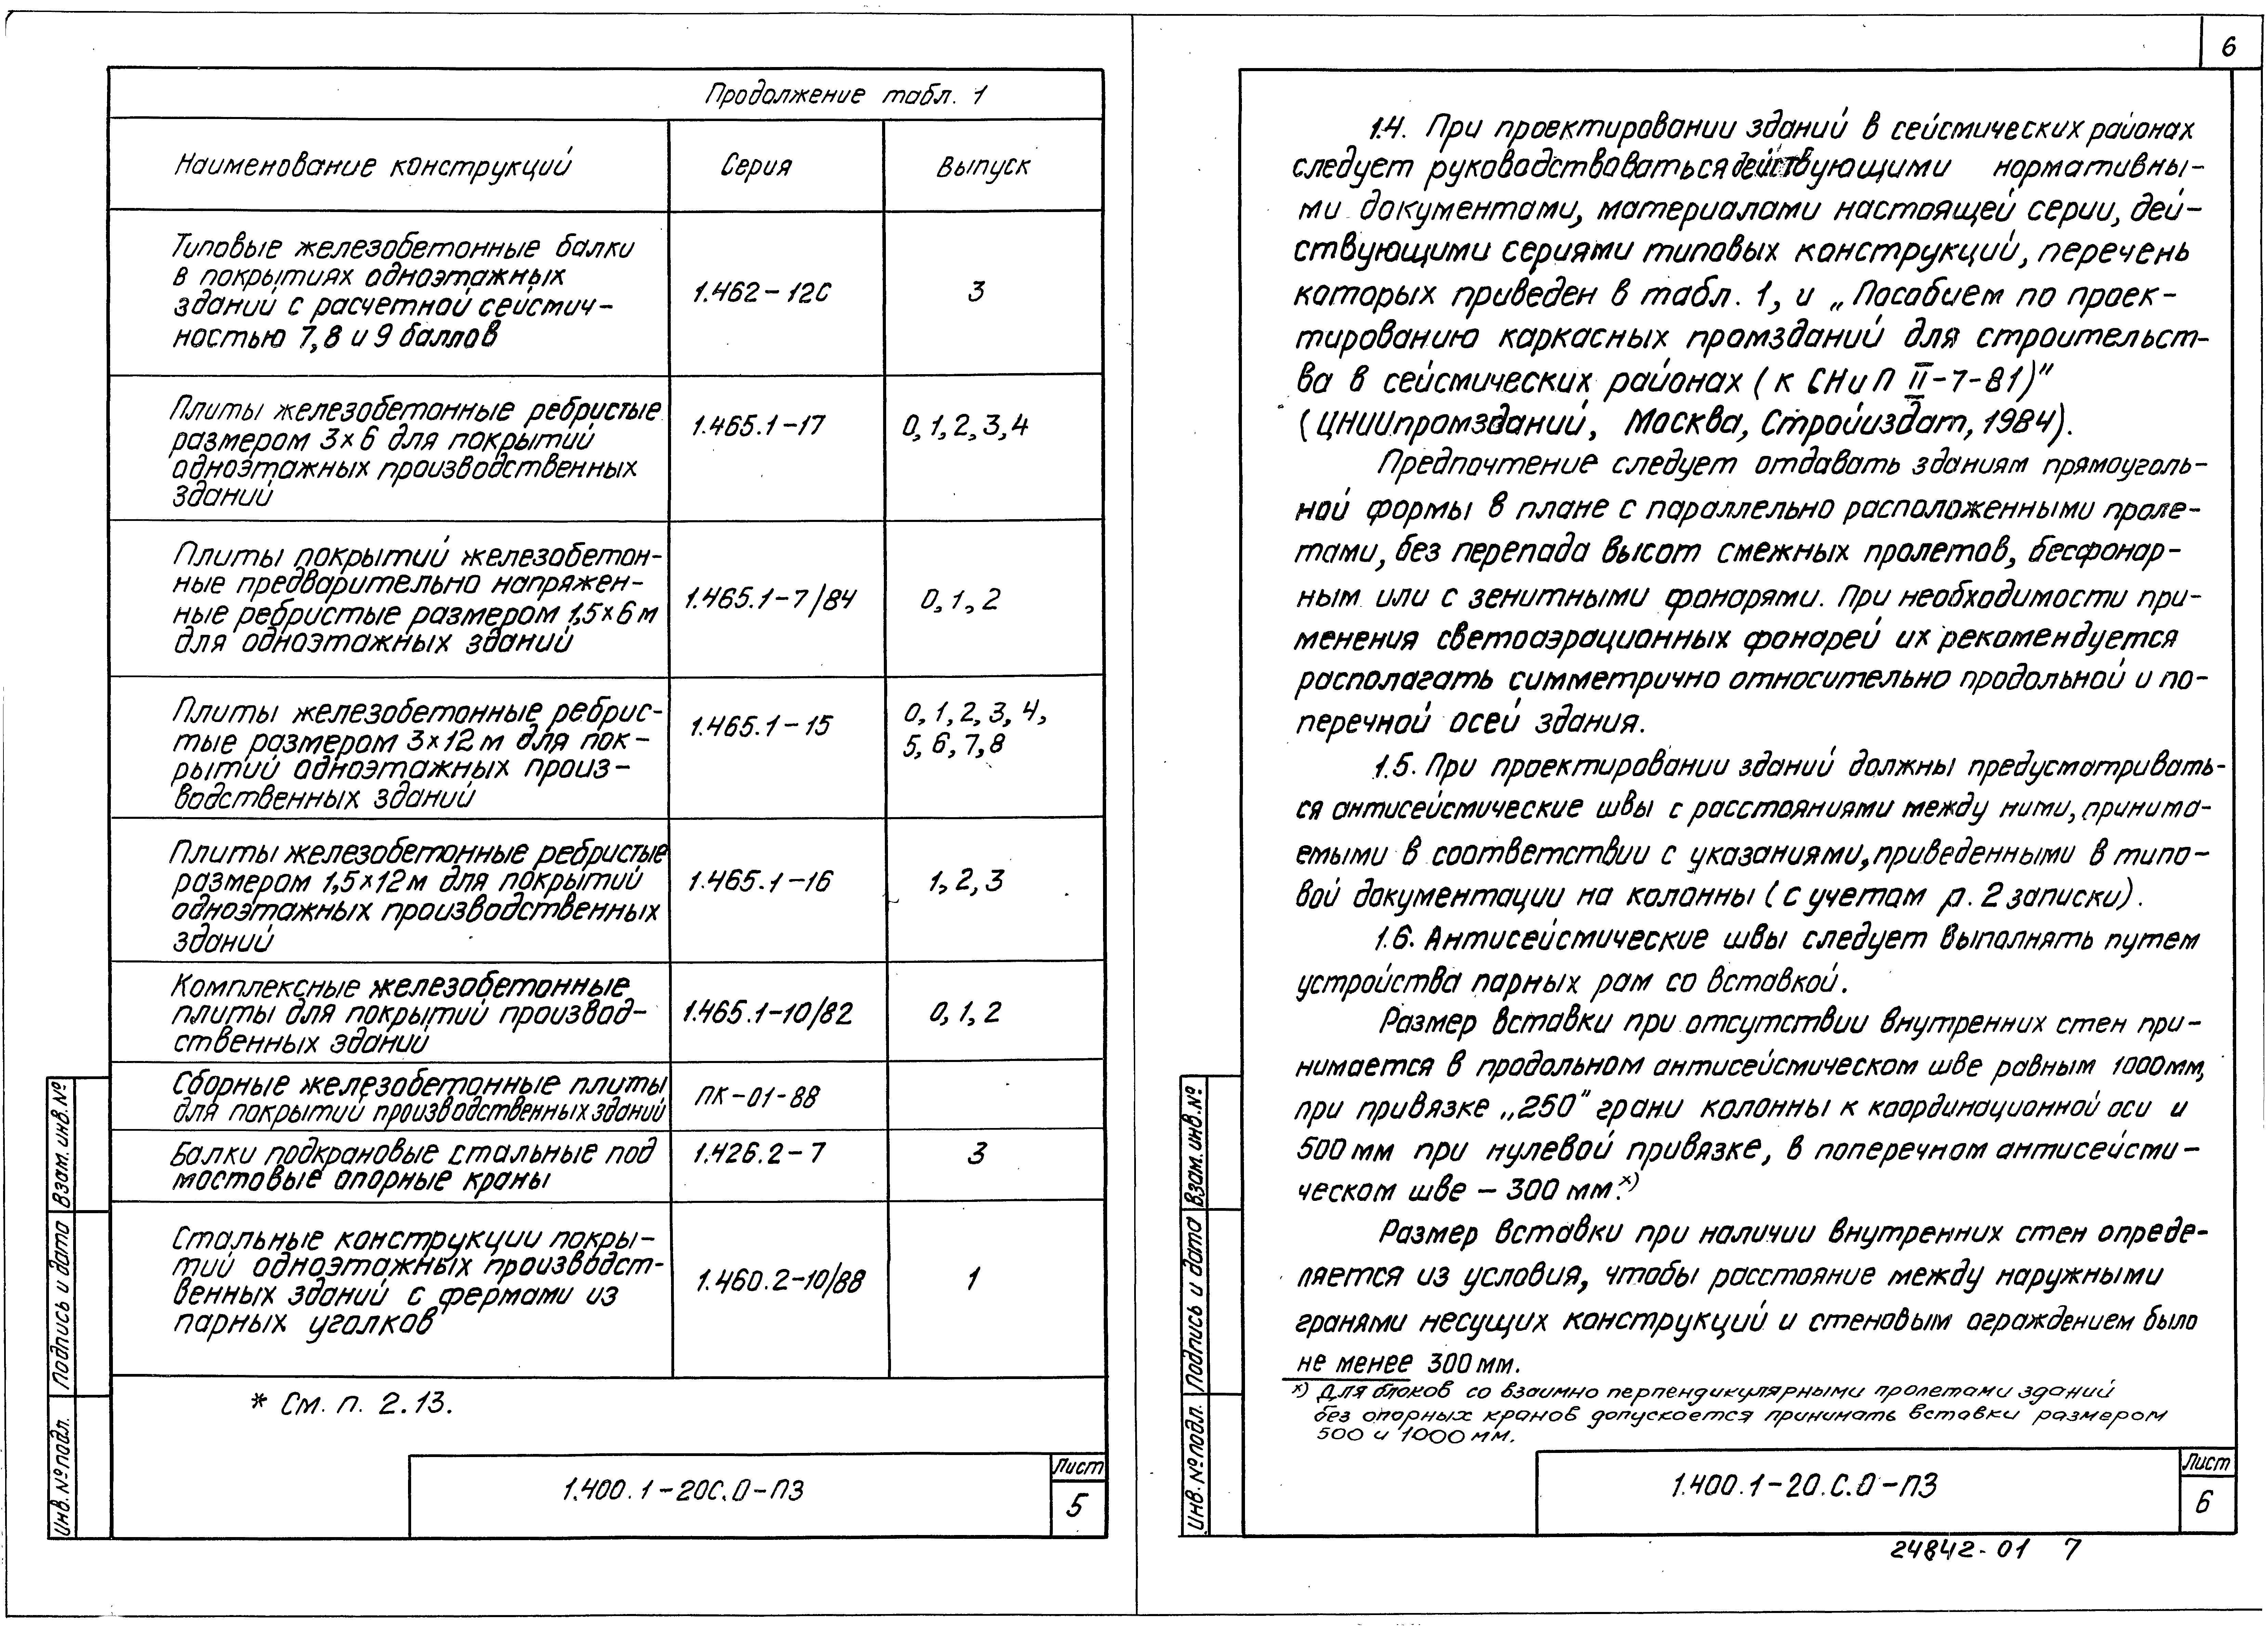 Продолжение табл. 1
Наименование конструкций Серия Выпуск
Типовые железобетонные балки
в покрытиях одноэтажных
зданий с расчетной сейсмич-
ностью 7, 8 и 9 баллов
1.462-12С 3
Плиты железобетонные ребристые
размером 3×6 для покрытий
одноэтажных производственных
зданий
1.465.1-17 0, 1, 2, 3, 4
Плиты покрытий железобетон-
ные предварительно напряжен-
ные ребристые размером 1,5×6 м
для одноэтажных зданий
1.465.1-7/84 0, 1, 2
Плиты железобетонные ребрис-
тые размером 3×12 м для пок-
рытий одноэтажных произ-
водственных зданий
1.465.1-15 0, 1, 2, 3, 4,
5, 6, 7, 8
Плиты железобетонные ребристые
размером 1,5×12 м для покрытий
одноэтажных производственных
зданий
1.465.1-16 1, 2, 3
Комплексные железобетонные
плиты для покрытий производ-
ственных зданий
1.465.1-10/82 0, 1, 2
Сборные железобетонные плиты
для покрытий производственных зданий
ПК-01-88
Балки подкрановые стальные под
мостовые опорные краны
1.426.2-7 3
Стальные конструкции покры-
тий одноэтажных производст-
венных зданий с фермами из
парных уголков
1.460.2-10/88 1
* См. п. 2.13.
1.400.1-20С.0-ПЗ
Лист
5
Инв. № подл. Подпись и дата Взам. инв. №
6
1.4. При проектировании зданий в сейсмических районах
следует руководствоваться действующими нормативны-
ми документами, материалами настоящей серии, дей-
ствующими сериями типовых конструкций, перечень
которых приведен в табл. 1, и „Пособием по проек-
тированию каркасных промзданий для строительст-
ва в сейсмических районах (к СНиП II-7-81)"
(ЦНИИпромзданий, Москва, Стройиздат, 1984).
Предпочтение следует отдавать зданиям прямоуголь-
ной формы в плане с параллельно расположенными проле-
тами, без перепада высот смежных пролетов, бесфонар-
ным или с зенитными фонарями. При необходимости при-
менения светоаэрационных фонарей их рекомендуется
располагать симметрично относительно продольной и по-
перечной осей здания.
1.5. При проектировании зданий должны предусматривать-
ся антисейсмические швы с расстояниями между ними, принима-
емыми в соответствии с указаниями, приведенными в типо-
вой документации на колонны (с учетом р. 2 записки).
1.6. Антисейсмические швы следует выполнять путем
устройства парных рам со вставкой.
Размер вставки при отсутствии внутренних стен при-
нимается в продольном антисейсмическом шве равным 1000 мм,
при привязке „250" грани колонны к координационной оси и
500 мм при нулевой привязке, в поперечном антисейсми-
ческом шве - 300 мм.х)
Размер вставки при наличии внутренних стен опреде-
ляется из условия, чтобы расстояние между наружными
гранями несущих конструкций и стеновым ограждением было
не менее 300 мм.
х) Для блоков со взаимно перпендикулярными пролетами зданий
без опорных кранов допускается принимать вставки размером
500 и 1000 мм.
1.400.1-20.С.0-ПЗ
Лист
6
Инв. № подл. Подпись и дата Взам. инв. №
24842-01 7